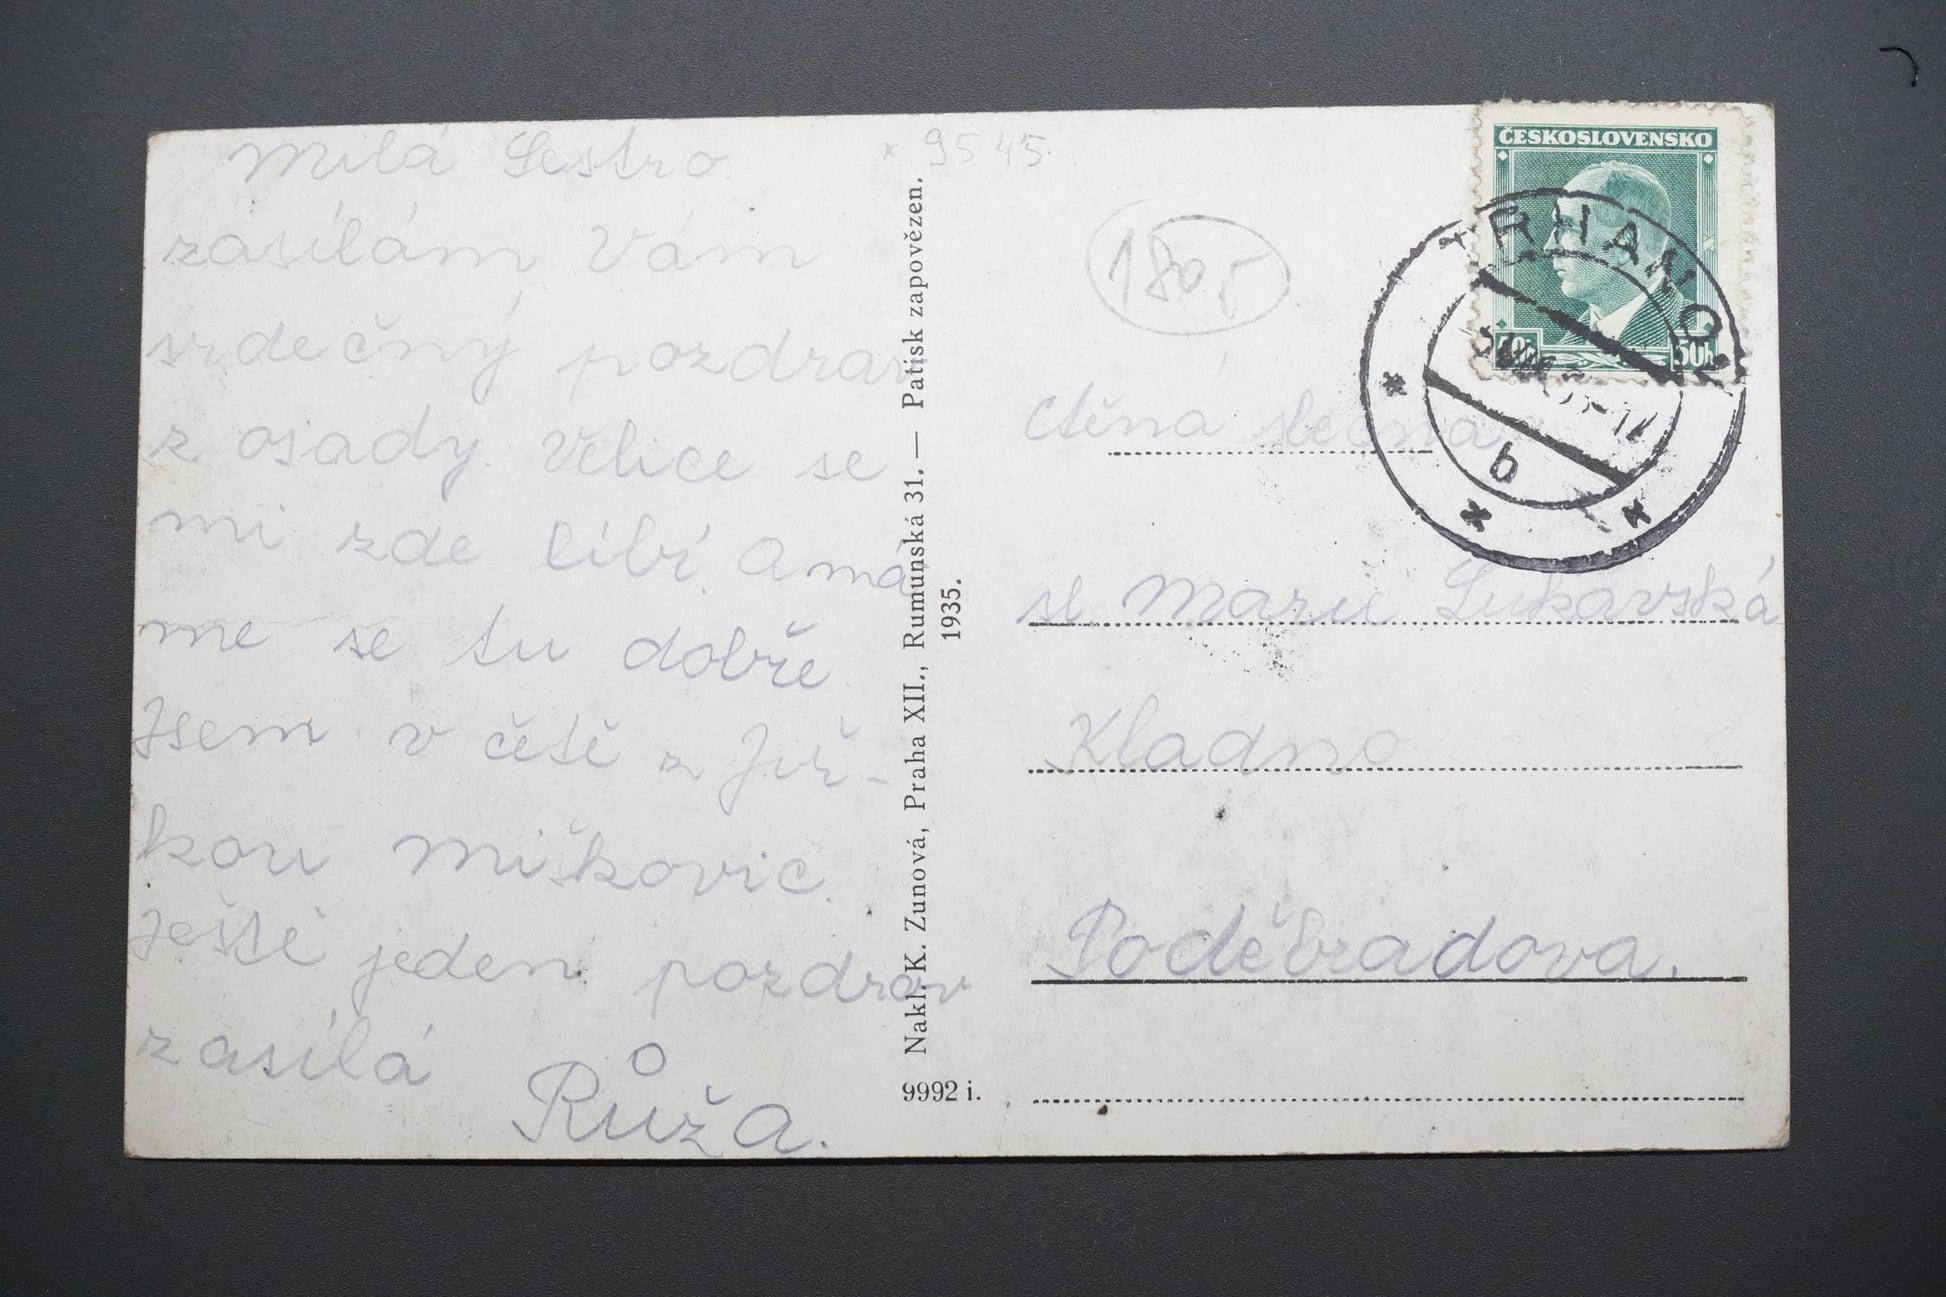 Milá Sestro.
zasílám Vám
srdečný pozdrav
z osady. Velice se
mi zde líbí. A má
me se tu dobře.
Jsem v četě z Jiř-
kou Miškovic.
Ještě jeden pozdrav
zasílá
Růža.
× 9545
1805
ČESKOSLOVENSKO
50h
TRHANOV
b
Ctěná slečna
sl. Marie Lukavská
Kladno
Poděbradova.
Nakl. K. Zunová, Praha XII., Rumunská 31. — Patisk zapovězen.
1935.
9992 i.